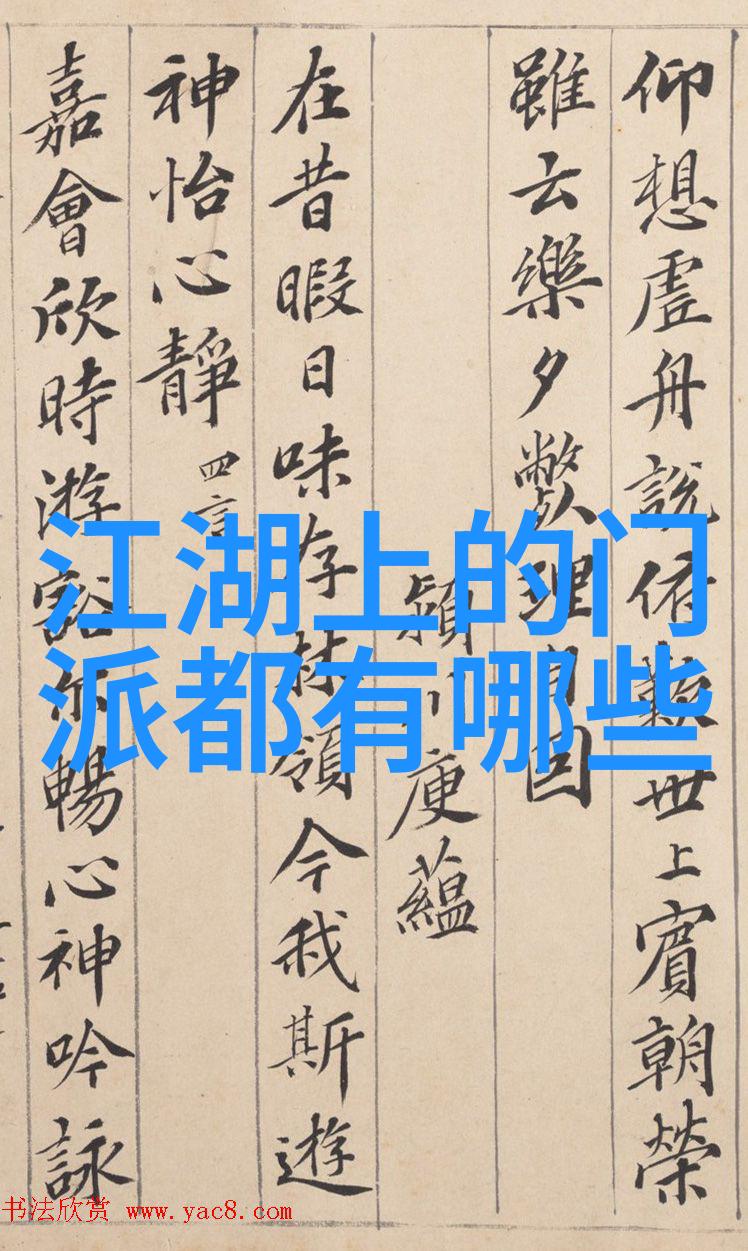 仰想虛舟說俯歎世上賓朝榮
雖云樂夕理自因
潁川庾蘊
在昔暇日味存林嶺今我斯遊
神怡心靜 四言
嘉會欣時游豁尓暢心神吟詠
江湖上的门
派都有哪些
书法欣赏 www.yac8.com